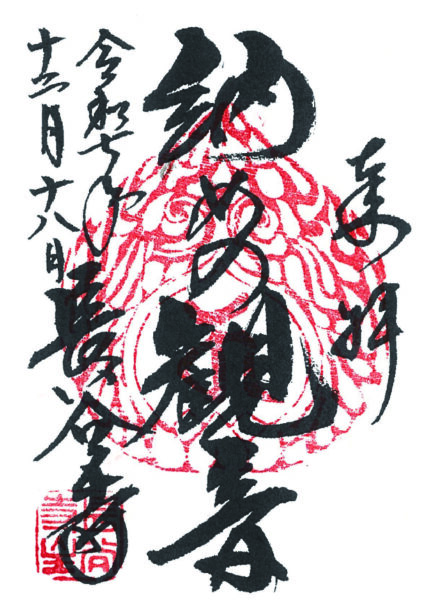 奉拝
納めの観音
長谷寺
令和七年
十二月十八日